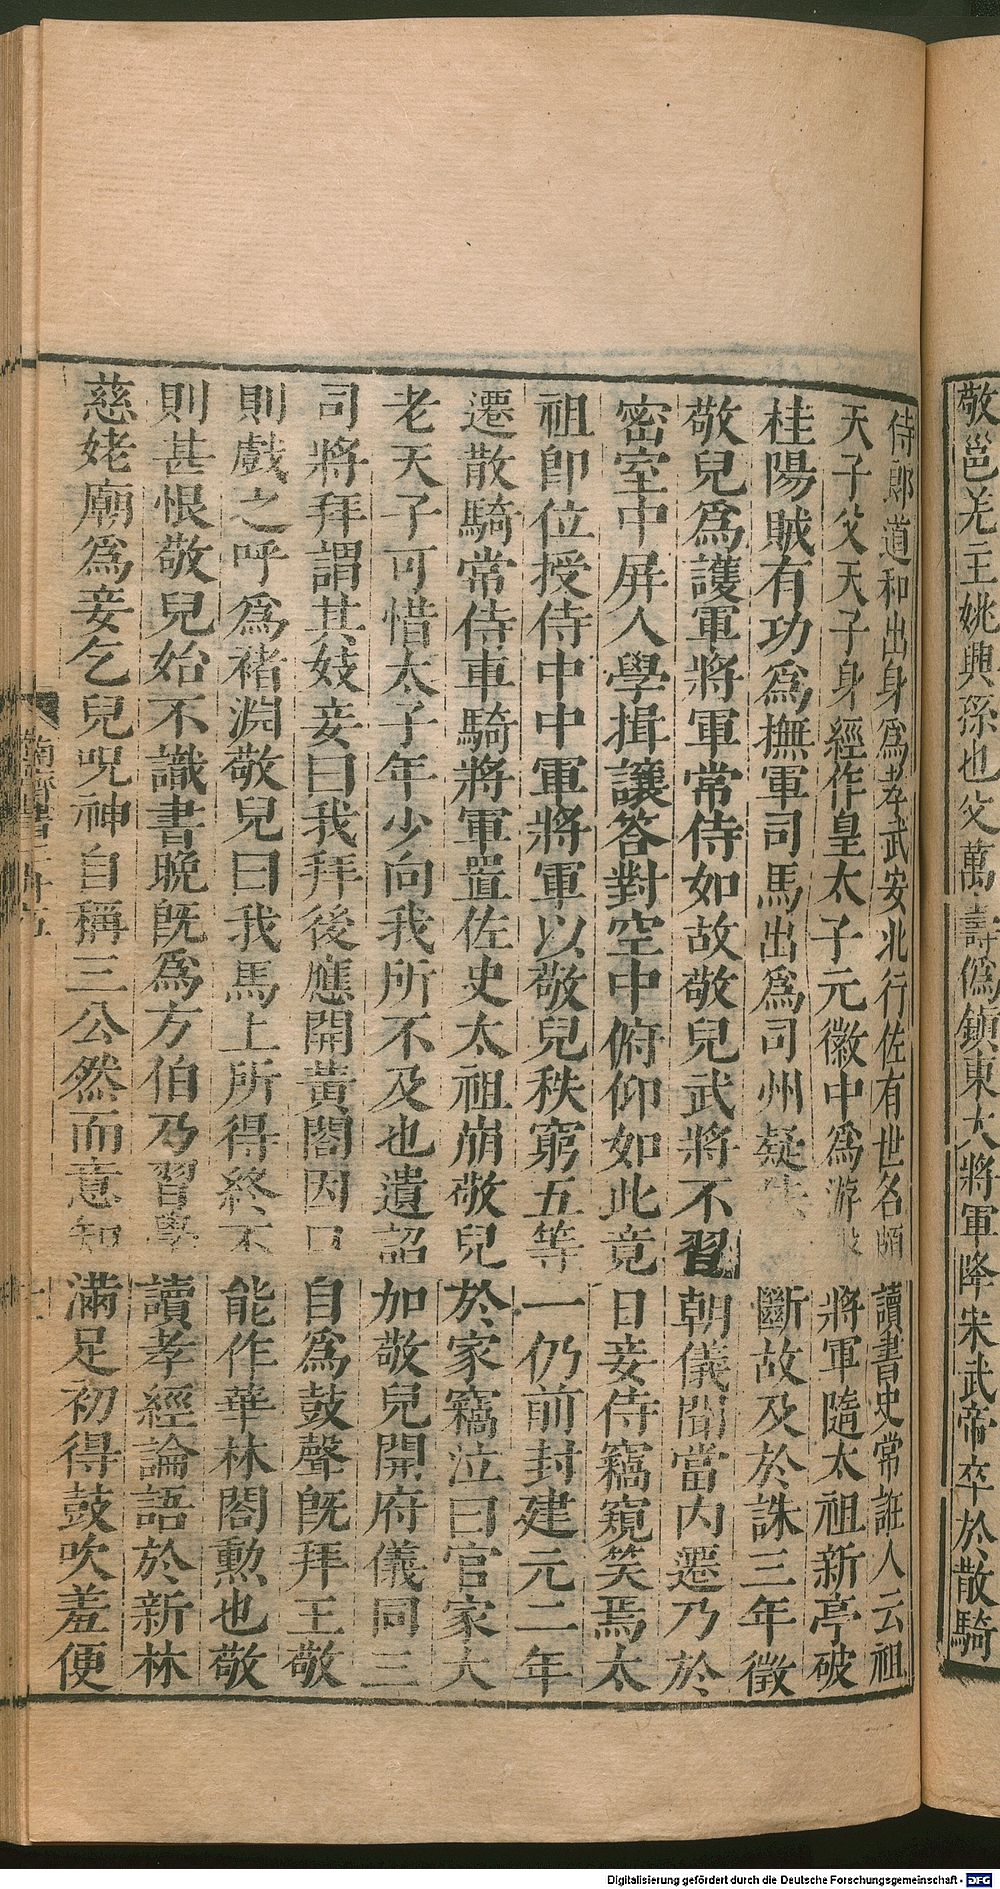 敬邕羌主姚興孫也父萬壽僞鎮東大將軍降宋武帝卒於散騎
侍郎道和出身爲孝武安北行佐有世名頗讀書史常誑人云祖
天子父天子身經作皇太子元徽中爲游將軍隨太祖新亭破
桂陽賊有功爲撫軍司馬出爲司州疑斷故及於誅三年徵
敬兒爲護軍將軍常侍如故敬兒武將不習朝儀聞當內遷乃於
密室中屏人學揖讓答對空中俯仰如此竟日妾侍竊窺笑焉太
祖即位授侍中中軍將軍以敬兒秩窮五等一仍前封建元二年
遷散騎常侍車騎將軍置佐史太祖崩敬兒於家竊泣曰官家大
老天子可惜太子年少向我所不及也遺詔加敬兒開府儀同三
司將拜謂其妓妾曰我拜後應開黃閤因口自爲鼓聲旣拜王敬
則戲之呼爲褚淵敬兒曰我馬上所得終不能作華林閤勲也敬
則甚恨敬兒始不識書晩旣爲方伯乃習學讀孝經論語於新林
慈姥廟爲妾乞兒呪神自稱三公然而意知滿足初得鼓吹羞便
南齊書二十五
Digitalisierung gefördert durch die Deutsche Forschungsgemeinschaft - DFG